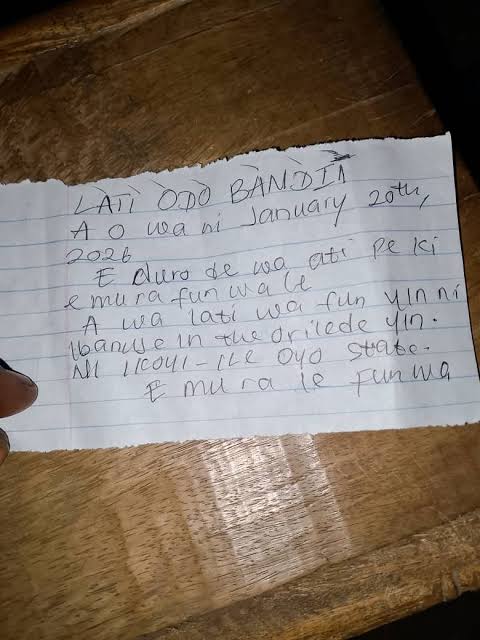 LATI ODO BANDIT
A O wa ni January 20th,
2026
E duro de wa ati pe ki
e mura fun wa le
A wa lati wa fun yin ni
Ibanuje in the orilede yin.
Ni IKOYI-ILE OYO State.
E mura le fun wa